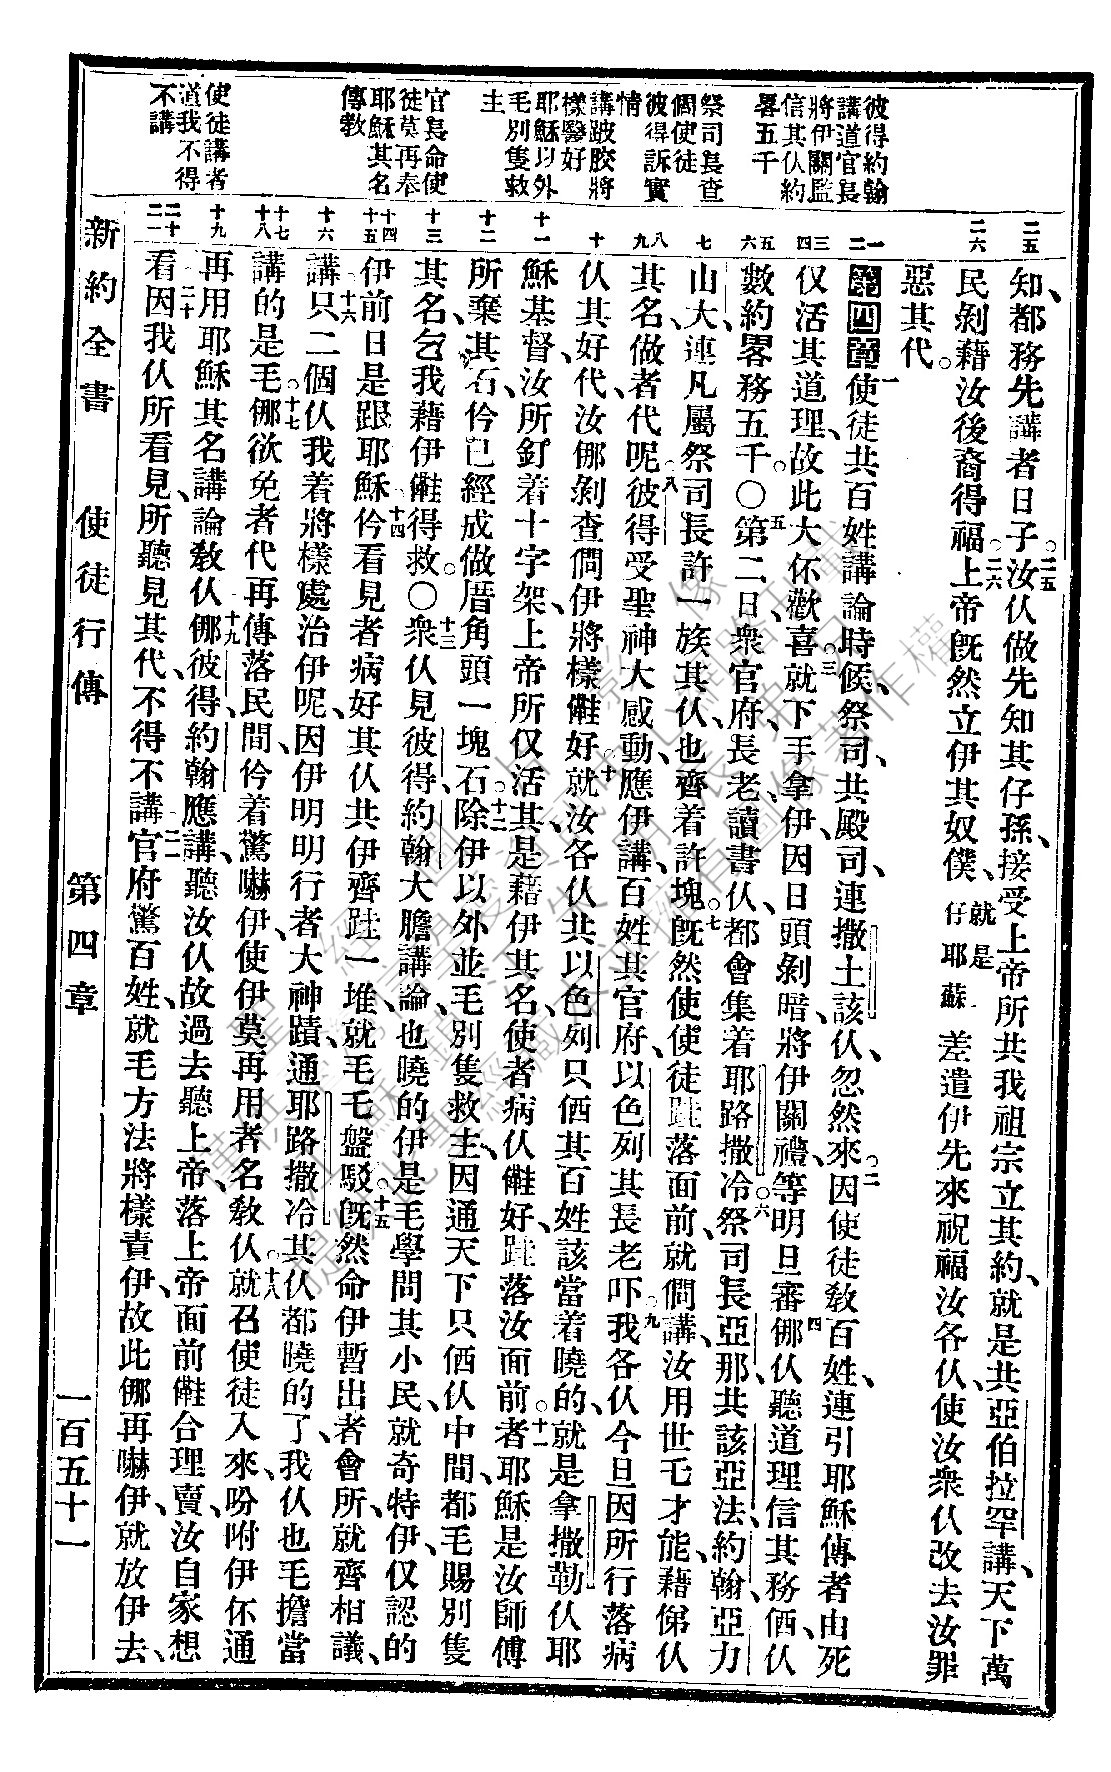 彼得約翰
講道官長
將伊關監
信其仈約
畧五千
祭司長查
問使徒
彼得訴實
情
講跛胶將
樣醫好
耶穌以外
毛別隻救
主
官長命使
徒莫再奉
耶穌其名
傳教
使徒講者
道我不得
不講
二五
二六
一
二
三
四
五
六
七
八
九
十
十一
十二
十三
十四
十五
十六
十七
十八
十九
二十
二一
知、都務先講者日子。二五汝仈做先知其仔孫、接受上帝所共我祖宗立其約、就是共亞伯拉罕講、天下萬
民剝藉汝後裔得福。二六上帝旣然立伊其奴僕、就是仔耶穌差遣伊先來祝福汝各仈、使汝衆仈改去汝罪
惡其代。
第四章一使徒共百姓講論時候、祭司共殿司連撒土該仈、忽然來。二因使徒敎百姓、連引耶穌傳者由死
仅活其道理、故此大伓歡喜。三就下手拿伊、因日頭剝暗、將伊關禮、等明旦審。四㑚仈聽道理信其務価、仈
數約畧務五千。〇五第二日衆官府、長老、讀書仈、都會集着耶路撒冷。六祭司長亞那、共該亞法、約翰、亞力
山大、連凡屬祭司長許一族其仈、也齊着許塊。七旣然使使徒跬落面前、就問講、汝用世乇才能、藉俤仈
其名、做者代呢。八彼得受聖神大感動、應伊講、百姓其官府、以色列其長老吓。九我各仈今旦因所行落病
仈其好代、汝㑚剝查問伊將樣㒓好、十就汝各仈共以色列只価其百姓、該當着曉的、就是拿撒勒仈耶
穌基督、汝所釘着十字架、上帝所仅活其、是藉伊其名、使者病仈㒓好、跬落汝面前。十一者耶穌是汝師傅
所棄其石、伶已經成做厝角頭一塊石。十二除伊以外並毛別隻救主、因通天下只価仈中間、都毛賜別隻
其名、乞我藉伊㒓得救。〇十三衆仈見彼得約翰大膽講論、也曉的伊是毛學問其小民、就奇特、伊仅認的
伊前日是跟耶穌。十四伶看見者病好其仈共伊齊跬一堆、就毛乇盤駁。十五旣然命伊暫出者會所、就齊相議、
講、十六只二個仈、我着將樣處治伊呢、因伊明明行者大神蹟、通耶路撒冷其仈都曉的了、我仈也毛擔當
講的是毛。十七㑚欲免者代再傳落民間、伶着驚嚇伊、使伊莫再用者名敎仈。十八就召使徒入來、吩咐伊伓通
再用耶穌其名講論敎仈。十九㑚彼得約翰應講、聽汝仈故過去聽上帝、落上帝面前㒓合理賣、汝自家想
看。二十因我仈所看見、所聽見其代、不得不講。二一官府驚百姓、就毛方法將樣責伊、故此㑚再嚇伊、就放伊去、
新約全書
使徒行傳
第四章
一百五十一